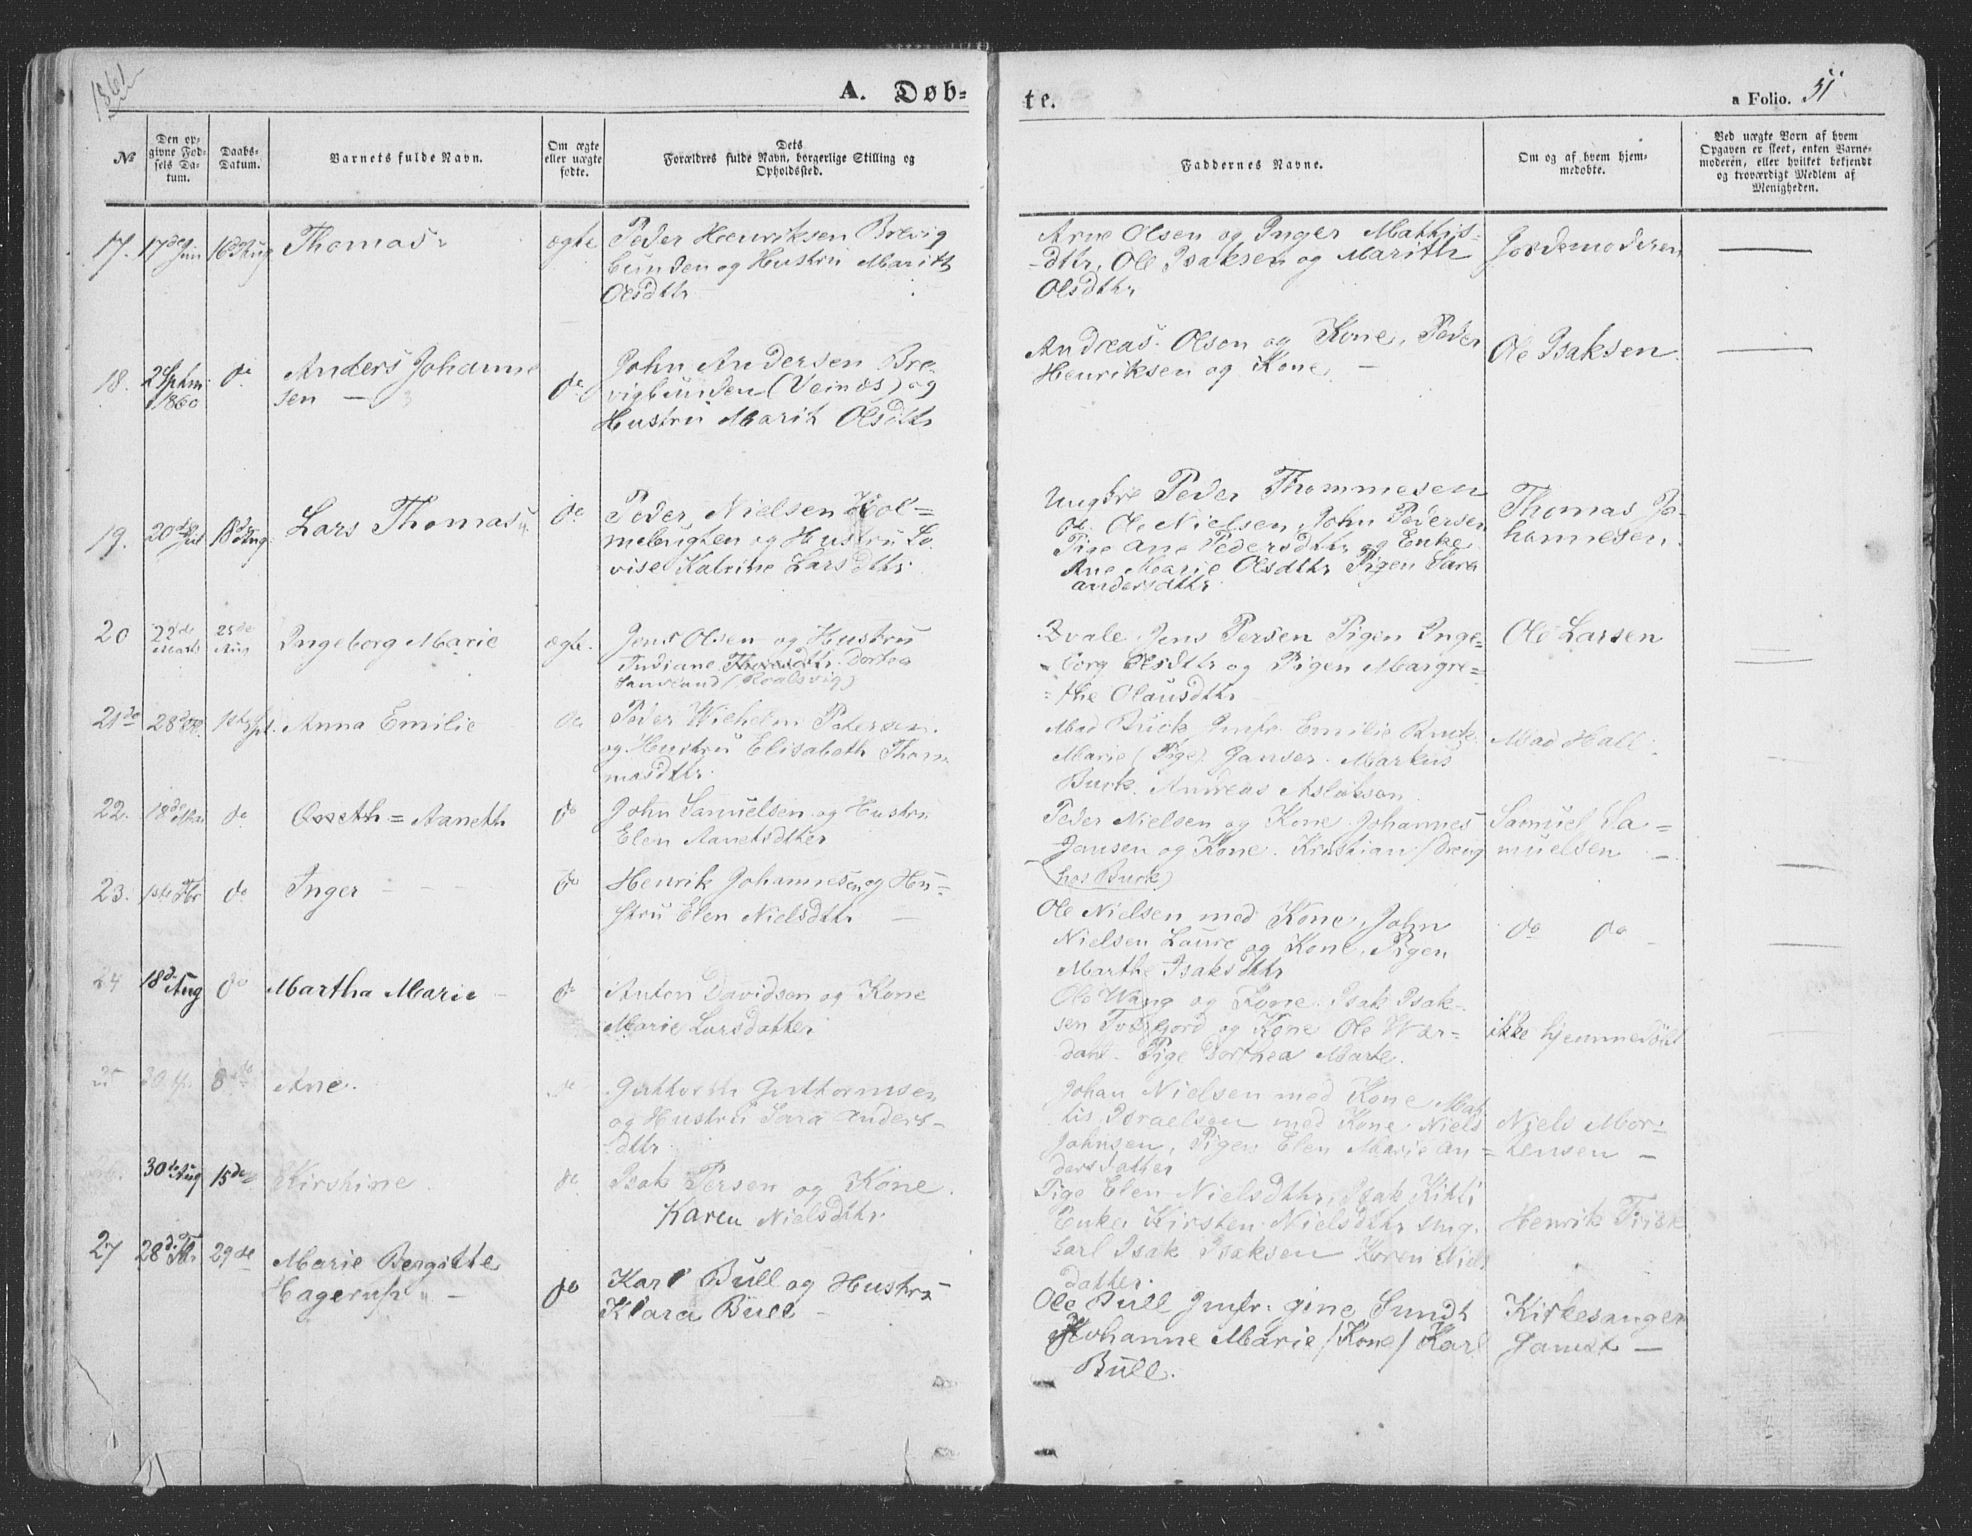 1861
A. Døb-
te.
a Folio. 51
No
Den op-
givne Fød-
sels Da-
tum.
Daabs-
Datum.
Barnets fulde Navn.
Om ægte
eller uægte
fødte.
Dets
Forældres fulde Navn, borgerlige Stilling og
Opholdssted.
Faddernes Navne.
Om og af hvem hjem-
medøbte.
Ved uægte Børn af hvem
Opgaven er skeet, enten Barne-
moderen, eller hvilket bekjendt
og troværdigt Medlem af
Menigheden.
17. 17de Juni 16de Aug Thomas ægte
Peder Henriksen Brevig
bunden og Hustru Marith
Olsdttr
Arne Olsen og Inger Mathis-
-dttr, Ole Isaksen og Marith
Olsdttr
Jordemoderen
18. 2 Sptm 1860 do
Anders Johanne
sen
do
John Andersen Bre-
vigbunden (Veines) og
Hustru Marit Olsdttr
Andreas Olson og Kone, Peder
Henriksen og Kone.
Ole Isaksen
19. 20de Jul 18de Aug. Lars Thomas do
Peder Nielsen Hol-
menbugten og Hustru Lo-
vise Katrine Larsdttr
Ungkrl Peder Thommesen
Ole Nielsen, John Pedersen
Pige Ane Pedersdttr og Enke
Ane Marie Olsdttr Pigen Sara
andersdttr
Thomas Jo-
hannesen.
20 22de Marts 25de Aug Ingeborg Marie ægte.
Jens Olsen og Hustru
Indiane Dortea
(Roalsvig)
Jens Persen Pigen Inge-
borg Olsdttr og Pigen Margre-
the Olausdttr
Ole Larsen
21de 28de 1ste Spt. Anna Emilie do
Peder Wilhelm Petersen
og Hustru Elisabeth Thom
masdttr
Mad Buck Jmfr Emilie Buck
Marie (Pige) Markus
Buck. Andreas Aslaksen
Mad Hall
22. 18de do = Aaneth do
John Samuelsen og Hustru
Elen Aanetsdtter
Peder Nielsen og Kone Johannes
Jansen og Kone. Kristian (Dreng
hos Buck)
Samuel Sa-
muelsen
23. 1ste Fbr do Inger do
Henrik Johannesen og Hu-
stru Elen Nielsdttr
Ole Nielsen med Kone, John
Nielsen Laure og Kone, Pigen
Marthe Isaksdttr
do do
24 18de Aug do Martha Marie do
Anton Davidsen og Kone
Marie Larsdatter
Ole Wang og Kone. Isak Isak-
sen og Kone Ole War-
dahl. Pige Dorthea Marte.
ikke hjemmedøbt
25 8de Ane. do
Guttorm Guttormsen
og Hustru Sara Anders-
dttr
Johan Nielsen med Kone Mat-
tis Israelsen med Kone Niels
Johnsen, Pigen Elen Marie An-
dersdatter
Niels Mor-
tensen
26. 30de Aug 15de Kirstine. do
Isak Persen og Kone
Karen Nielsdttr
Pige Elen Nielsdttr, Isak Kitti
Enke Kirsten Nielsdttr ung-
karl Isak Isaksen Karen Niels
datter.
Henrik Frisk
27 28de Fbr 29de
Marie Bergitte
Hagerup
do
Karl Bull og Hustru
Klara Bull
Ole Bull Jmfr. gine Sundt
Johanne Marie (Kone) Karl
Bull.
Kirkesanger